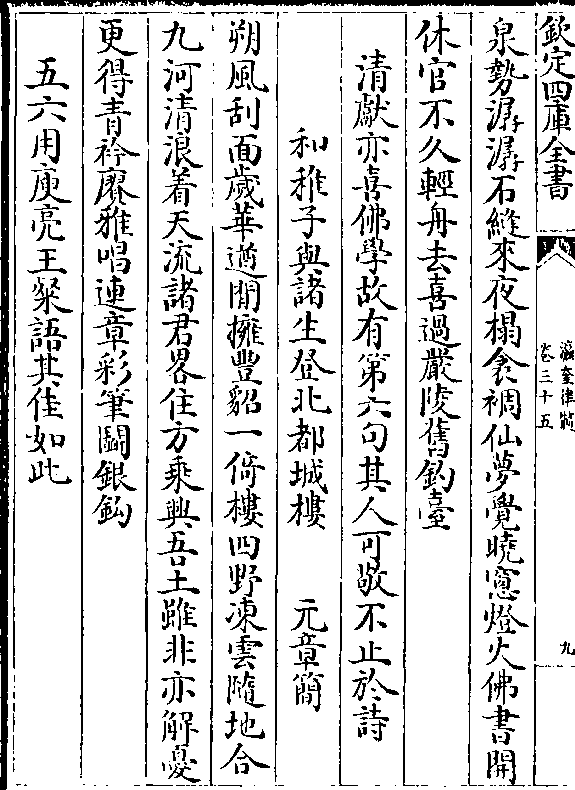 欽定四庫全書
瀛奎律髓
卷三十五
九
泉勢潺潺石縫來夜榻衾裯仙夢覺曉窻燈火佛書開
休官不久輕舟去喜過嚴陵舊釣臺
清獻亦喜佛學故有第六句其人可敬不止於詩
和稚子與諸生登北都城樓 元章簡
朔風刮面歲華遒閒擁豐貂一倚樓四野凍雲隨地合
九河清浪着天流諸君畧住方乘興吾土雖非亦解憂
更得青衿賡雅唱連章彩筆鬭銀鈎
五六用庾亮王粲語其佳如此